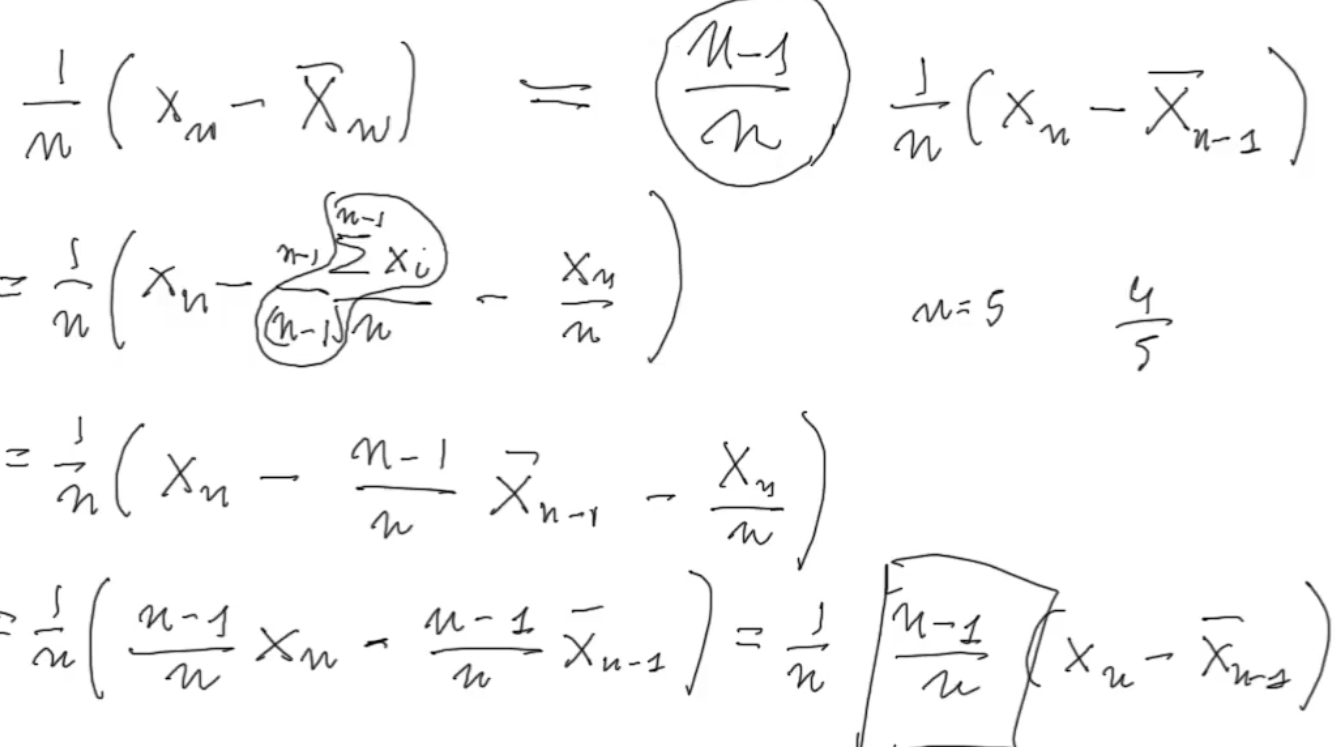 1/n (x_n − X̄_n) = (n−1)/n 1/n (x_n − X̄_{n−1})
= 1/n (x_n − (n−1)/(n−1) (∑^{n−1} x_i)/n − x_n/n) n=5 4/5
= 1/n (x_n − (n−1)/n X̄_{n−1} − x_n/n)
= 1/n ((n−1)/n x_n - (n−1)/n x̄_{n−1}) = 1/n (n−1)/n (x_n − x̄_{n−1})